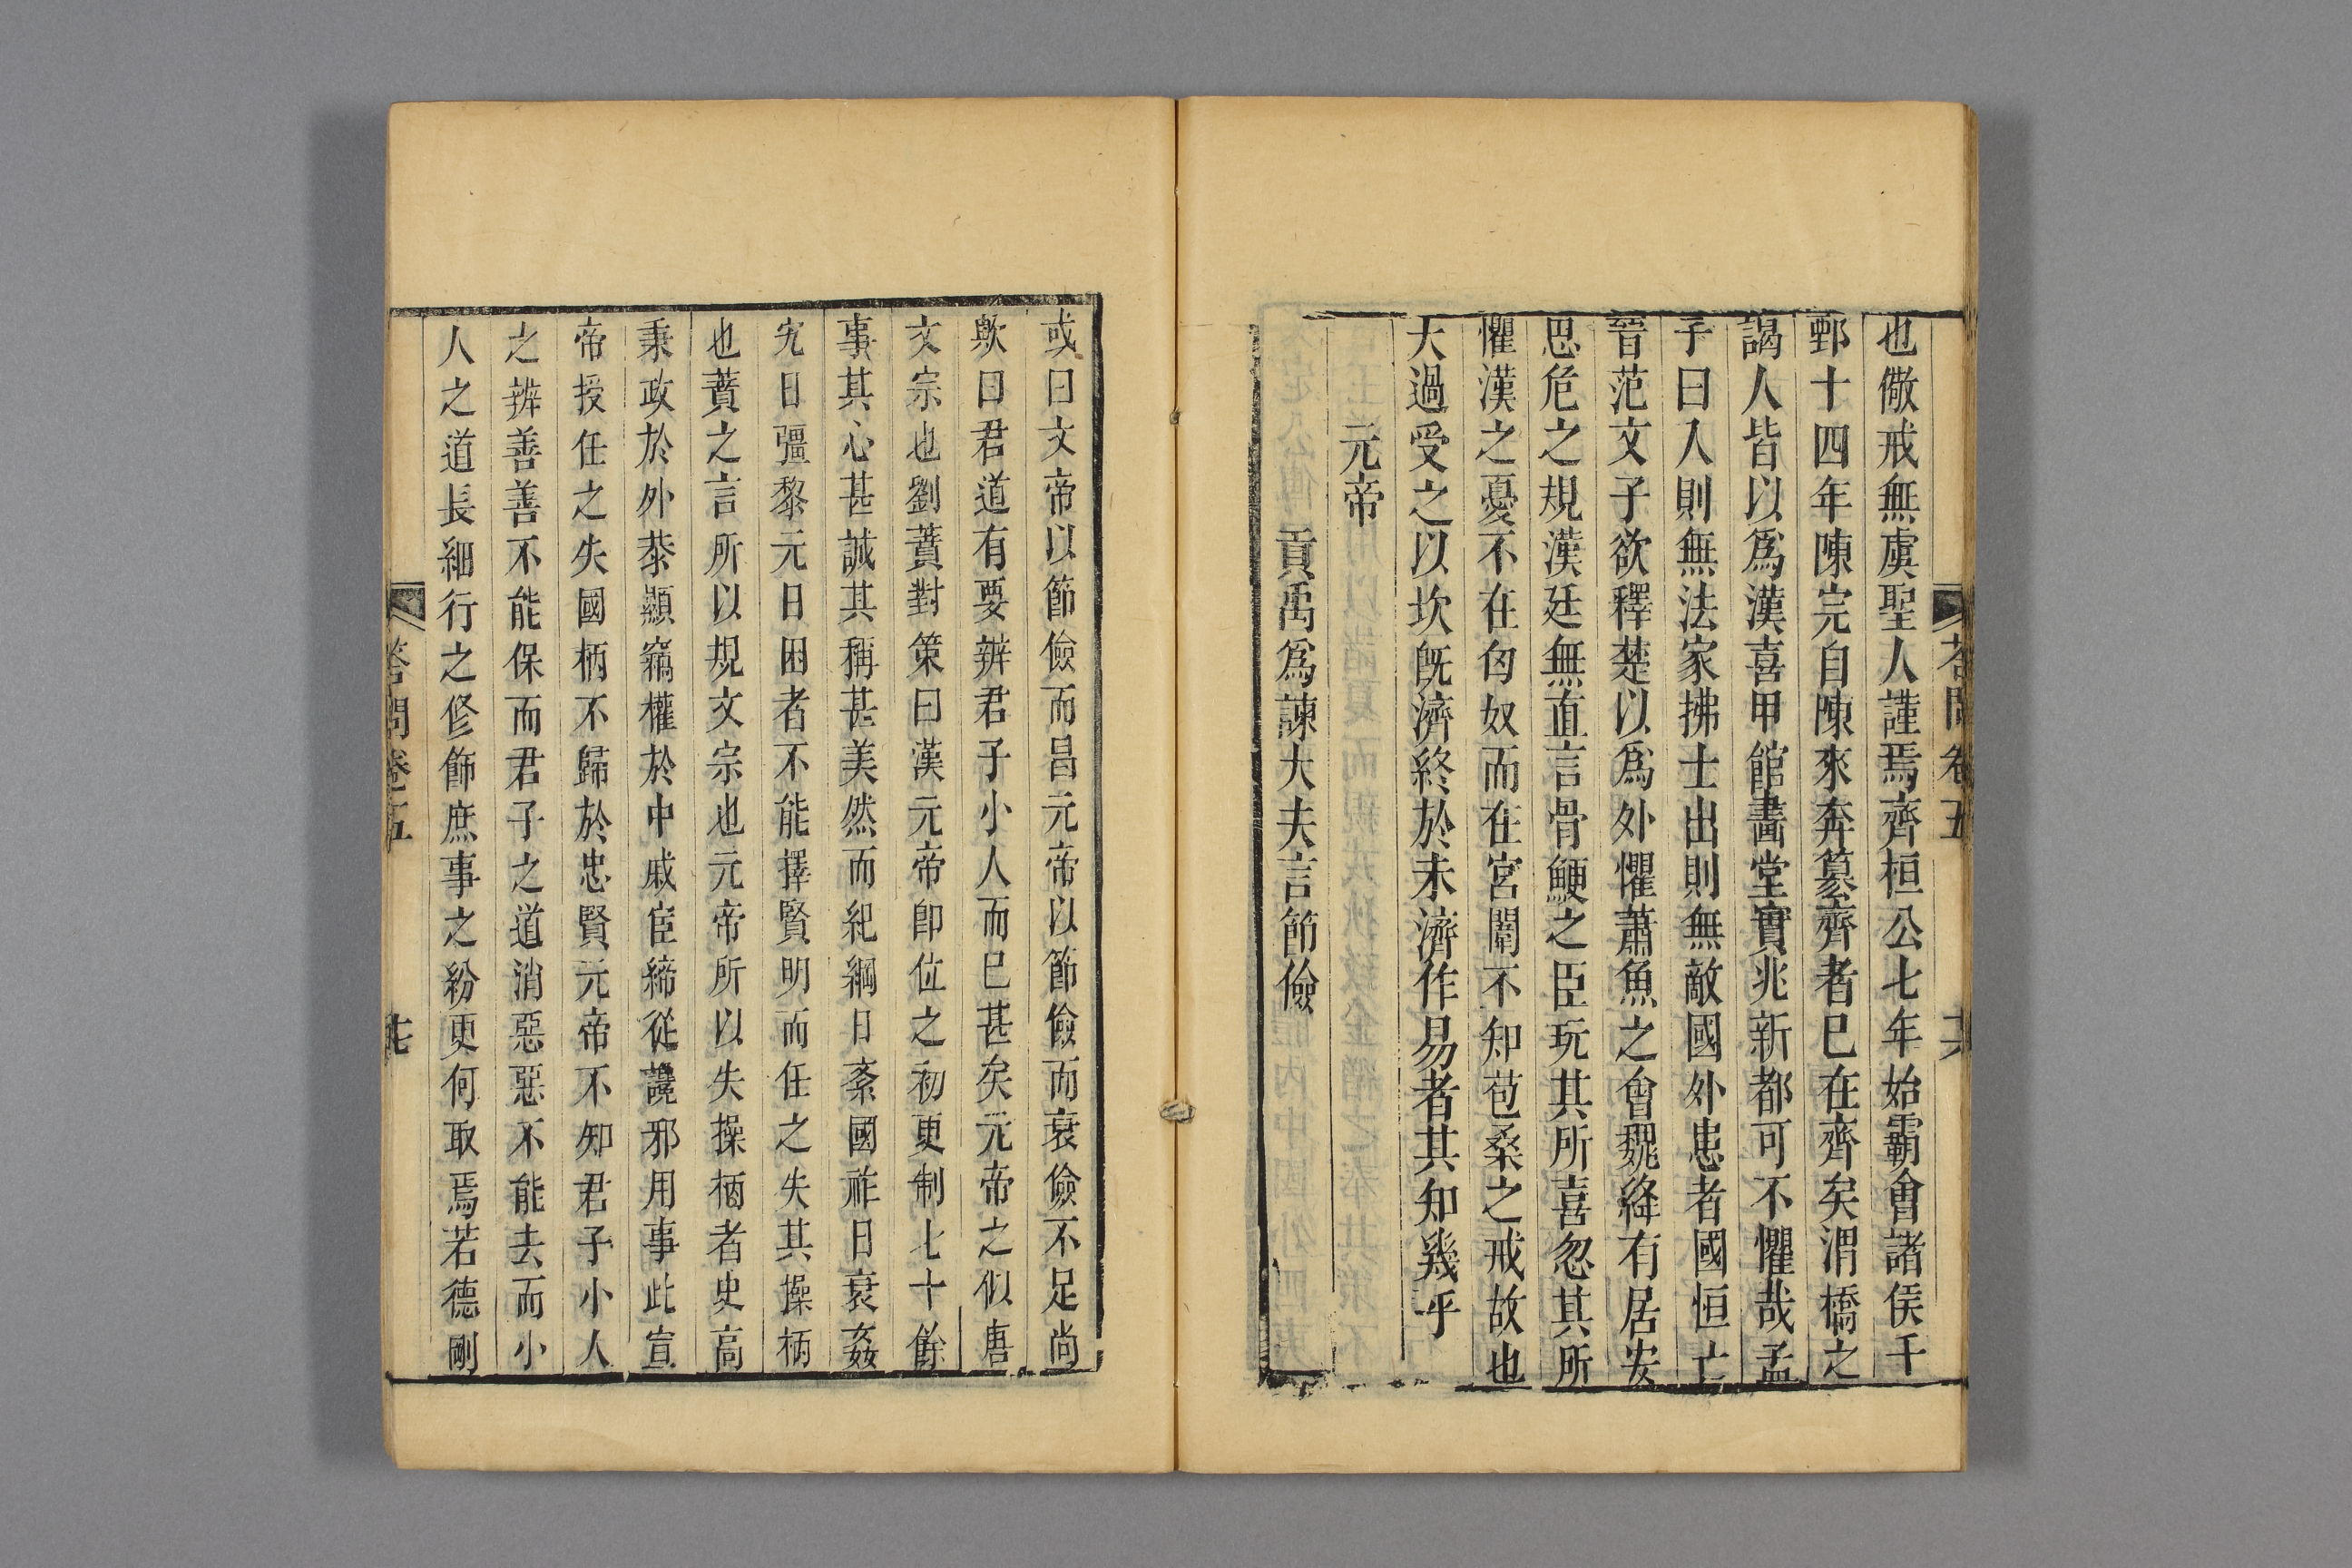 荅問卷五 十六
也儆戒無虞聖人謹焉齊桓公七年始霸會諸侯千
鄄十四年陳完自陳來奔簒齊者已在齊矣渭橋之
謁人皆以爲漢喜甲館畵堂實兆新都可不懼哉孟
子曰入則無法家拂士出則無敵國外患者國恒亡
晉范文子欲釋楚以爲外懼蕭魚之會魏絳有居安
思危之規漢廷無直言骨鯁之臣玩其所喜忽其所
懼漢之憂不在匈奴而在宮闈不知苞桑之戒故也
大過受之以坎旣濟終於未濟作易者其知幾乎
元帝
貢禹爲諫大夫言節儉
或曰文帝以節儉而昌元帝以節儉而衰儉不足尚
歟曰君道有要辨君子小人而巳甚矣元帝之似唐
文宗也劉蕡對策曰漢元帝卽位之初更制七十餘
事其心甚誠其稱甚美然而紀綱日紊國祚日衰姦
宄日彊黎元日困者不能擇賢明而任之失其操柄
也蕡之言所以規文宗也元帝所以失操柄者史高
秉政於外恭顯竊權於中戚宦締從讒邪用事此宣
帝授任之失國柄不歸於忠賢元帝不知君子小人
之辨善善不能保而君子之道消惡惡不能去而小
人之道長細行之修飾庶事之紛更何取焉若德剛
荅問卷五 十七